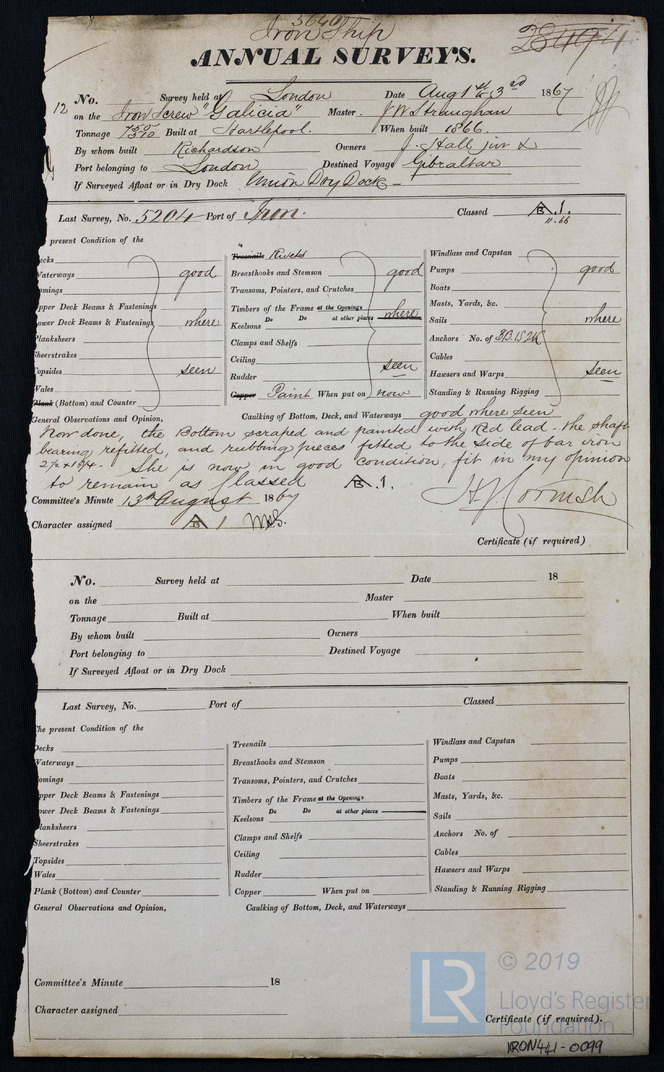 5640
Iron Ship
ANNUAL SURVEYS.
12 No. Survey held at London Date Aug 1st & 3rd 1867
on the Iron Screw "Galicia" Master J W Straughan
Tonnage Built at Hartlepool. When built 1866
By whom built Richardson Owners J. Hall junr &
Port belonging to London Destined Voyage Gibraltar
If Surveyed Afloat or in Dry Dock Union Dry Dock
Last Survey, No. 5204 Port of Iron. Classed A 1.
11.66
present Condition of the
ecks
Waterways good
omings
pper Deck Beams & Fastenings
ower Deck Beams & Fastenings where
lanksheers
heerstrakes
opsides seen
Wales
Plank (Bottom) and Counter
Treenails Rivets
Breasthooks and Stemson good
Transoms, Pointers, and Crutches
Timbers of the Frame at the Openings where
Keelsons Do Do at other places
Clamps and Shelfs
Ceiling
Rudder seen
Copper Paint When put on now
Windlass and Capstan
Pumps good
Boats
Masts, Yards, &c.
Sails where
Anchors No. of 3B. 1S 2K
Cables
Hawsers and Warps seen
Standing & Running Rigging
General Observations and Opinion, Caulking of Bottom, Deck, and Waterways good where seen
Now done, the Bottom scraped and painted with Red lead - the shaft
bearing refitted, and rubbing pieces fitted to the side of bar iron
She is now in good condition, fit in my opinion
to remain as Classed A 1.
Committee's Minute 13th August 1867
Character assigned A 1
Certificate (if required)
No. Survey held at Date 18
on the Master
Tonnage Built at When built
By whom built Owners
Port belonging to Destined Voyage
If Surveyed Afloat or in Dry Dock
Last Survey, No. Port of Classed
he present Condition of the
Decks
Waterways
omings
pper Deck Beams & Fastenings
ower Deck Beams & Fastenings
lanksheers
Sheerstrakes
Topsides
Wales
Plank (Bottom) and Counter
Treenails
Breasthooks and Stemson
Transoms, Pointers, and Crutches
Timbers of the Frame at the Openings
Keelsons Do Do at other places
Clamps and Shelfs
Ceiling
Rudder
Copper When put on
Windlass and Capstan
Pumps
Boats
Masts, Yards, &c.
Sails
Anchors No. of
Cables
Hawsers and Warps
Standing & Running Rigging
General Observations and Opinion, Caulking of Bottom, Deck, and Waterways
Committee's Minute 18
Character assigned
Certificate (if required).
LR © 2019
Lloyd's Register
Foundation
IRON441-0099